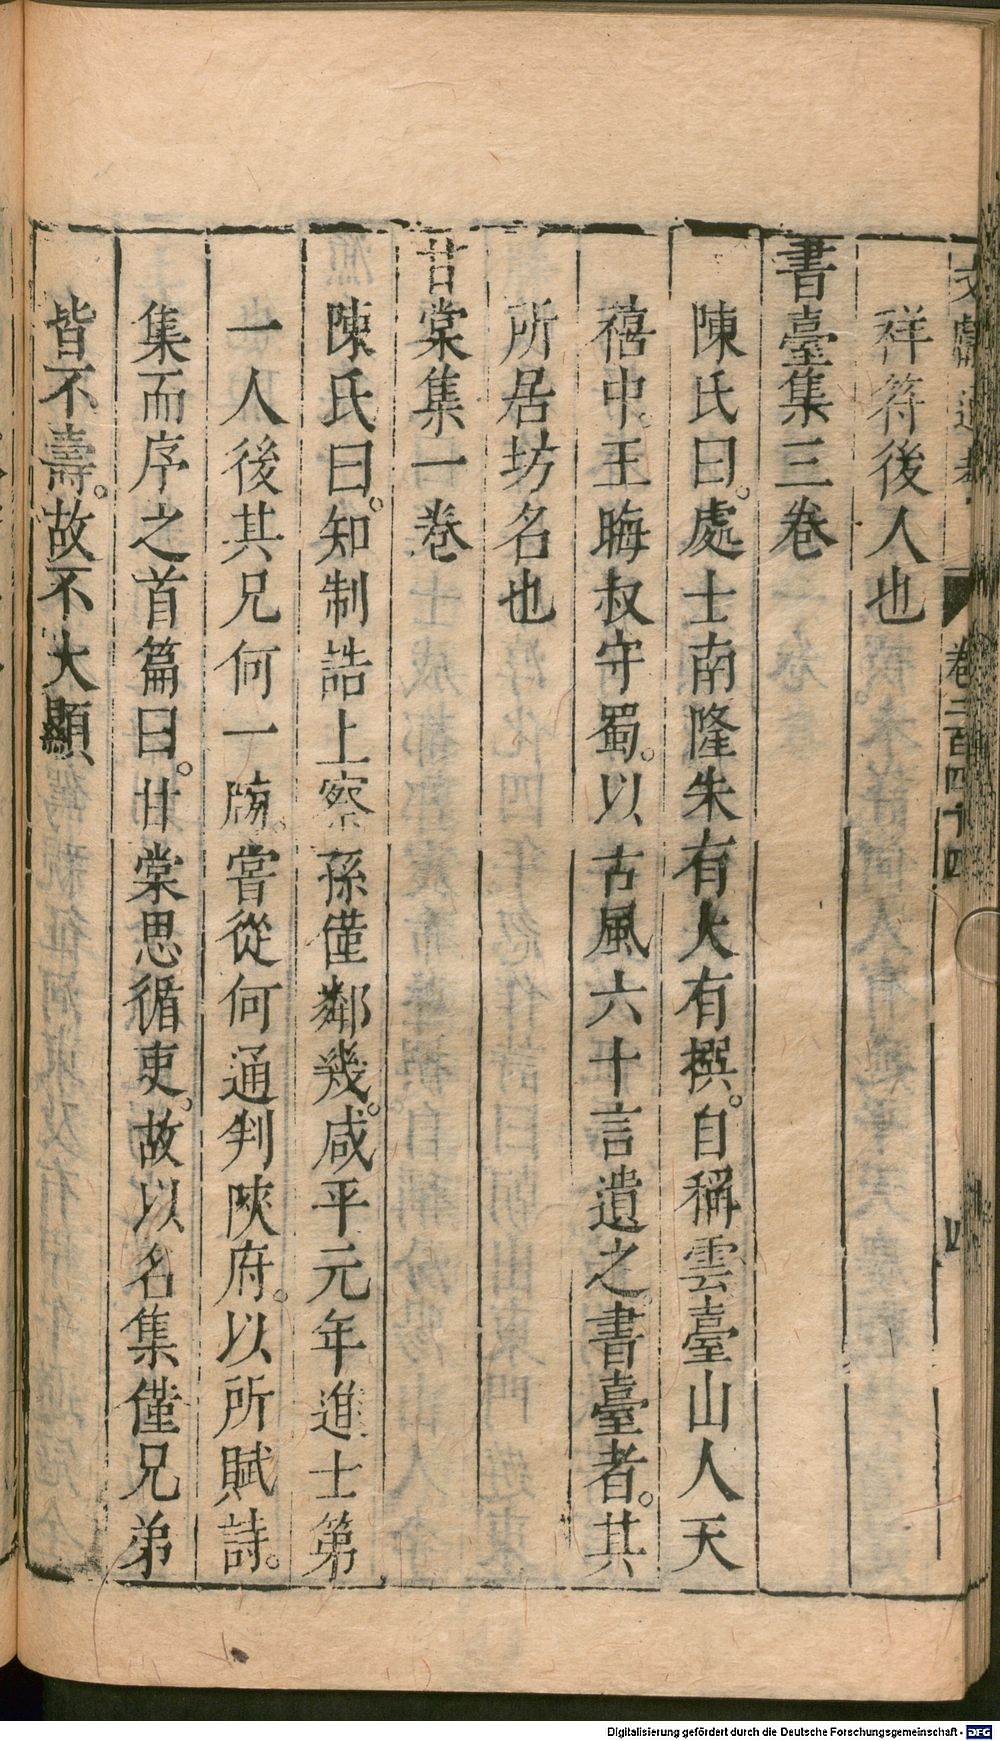 文獻通考 卷二百四十四 四
祥符後人也
書臺集三卷
陳氏曰處士南隆朱有大有撰自稱雲臺山人天
禧中王晦叔守蜀以古風六十言遺之書臺者其
所居坊名也
甘棠集一卷
陳氏曰知制誥上察孫僅鄰幾咸平元年進士第
一人後其兄何一牓嘗從何通判陝府以所賦詩
集而序之首篇曰甘棠思循吏故以名集僅兄弟
皆不壽故不大顯
Digitalisierung gefördert durch die Deutsche Forschungsgemeinschaft - DFG